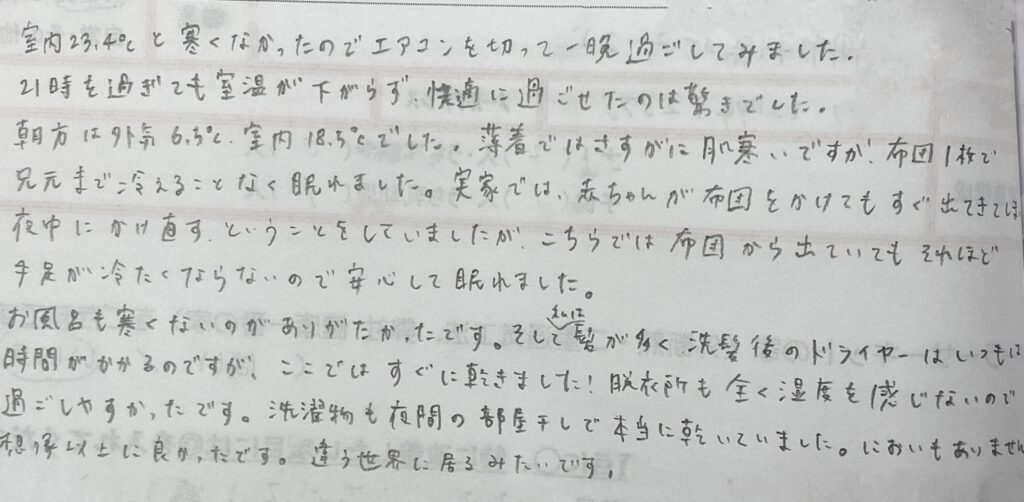 室内23.4℃と寒くなかったのでエアコンを切って一晩過ごしてみました.
21時を過ぎても室温が下がらず、快適に過ごせたのは驚きでした。
朝方は外気6.5℃.室内18.5℃でした。薄着ではさすがに肌寒いですが、布団1枚で
足元まで冷えることなく眠れました。実家では、赤ちゃんが布団をかけてもすぐ出てきては
夜中にかけ直す、ということをしていましたが、こちらでは布団から出ていてもそれほど
手足が冷たくならないので安心して眠れました。
お風呂も寒くないのがありがたかったです。そして私は髪が多く洗髪後のドライヤーはいつもは
時間がかかるのですが、ここではすぐに乾きました!脱衣所も全く湿度を感じないので
過ごしやすかったです。洗濯物も夜間の部屋干しで本当に乾いていました。においもありません
想像以上に良かったです。違う世界に居るみたいです.